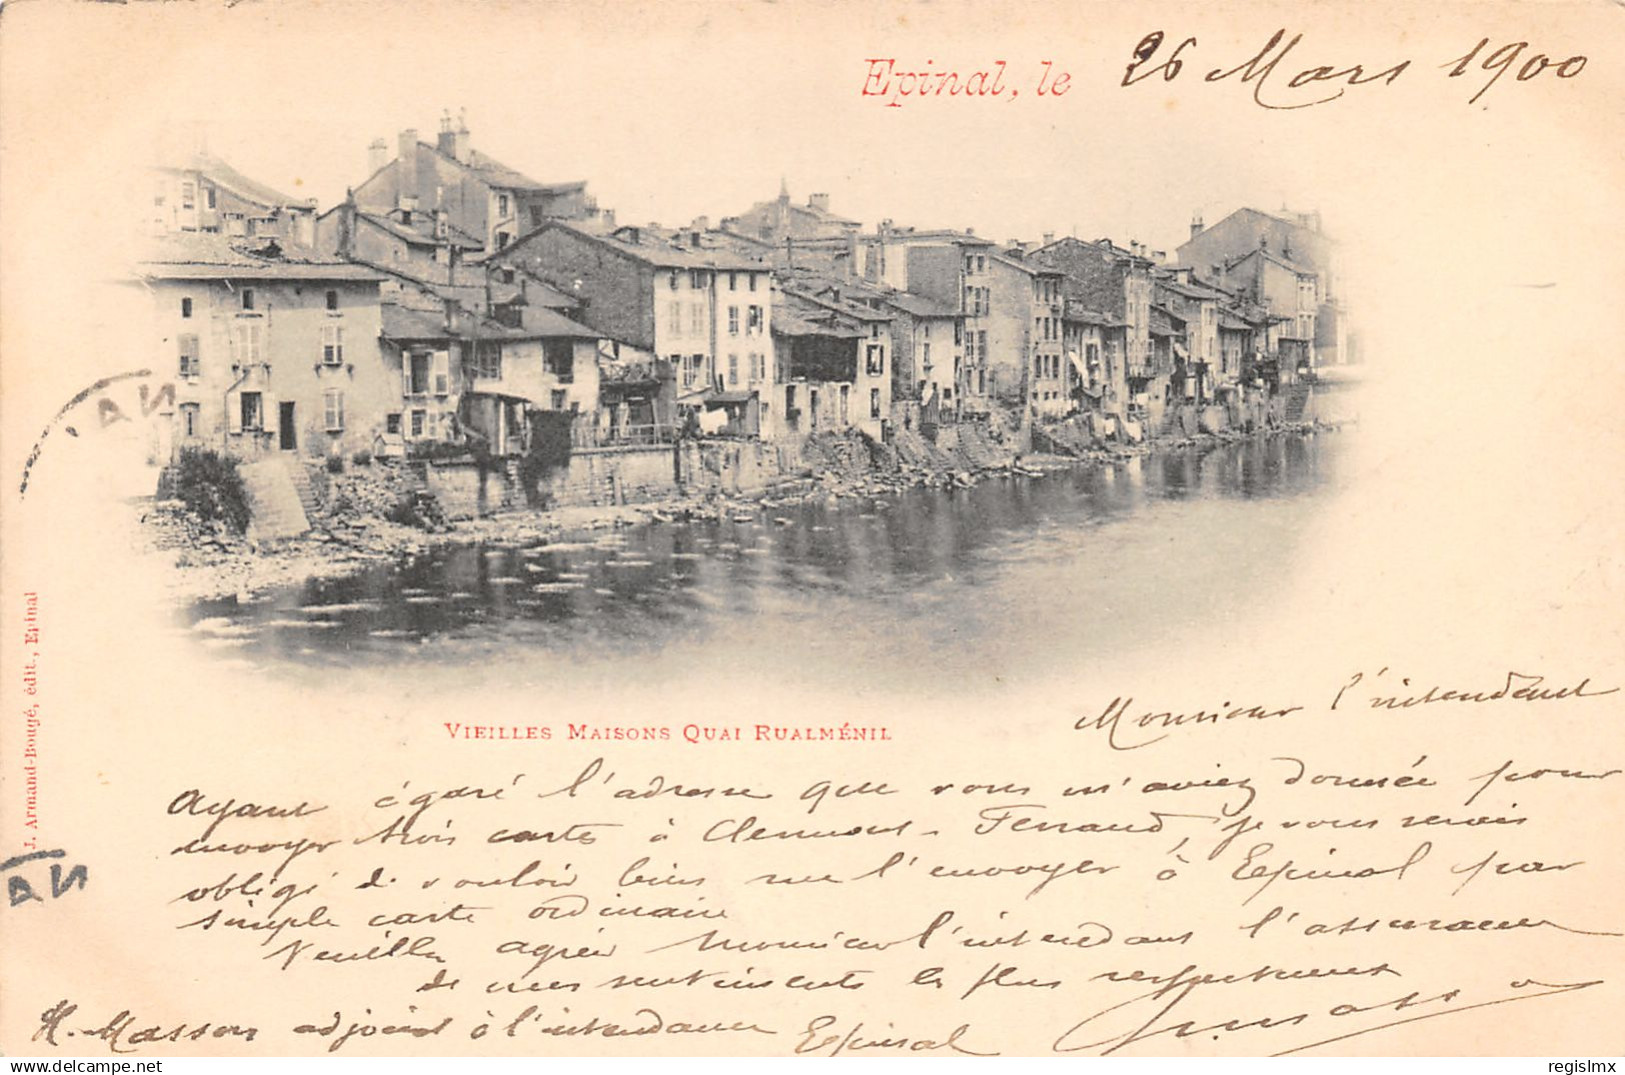 Epinal, le 26 Mars 1900
J. Armand-Bougé, édit., Epinal
VIEILLES MAISONS QUAI RUALMÉNIL
Monsieur l'intendant
Ayant égaré l'adresse que vous m'aviez donnée pour
envoyer trois cartes à Clermont-Ferrand, je vous serais
obligé de vouloir bien me l'envoyer à Epinal par
simple carte ordinaire
Veuillez agréer Monsieur l'intendant l'assurance
de mes sentiments les plus respectueux
H. Masson adjoint à l'intendance Epinal
regislmx